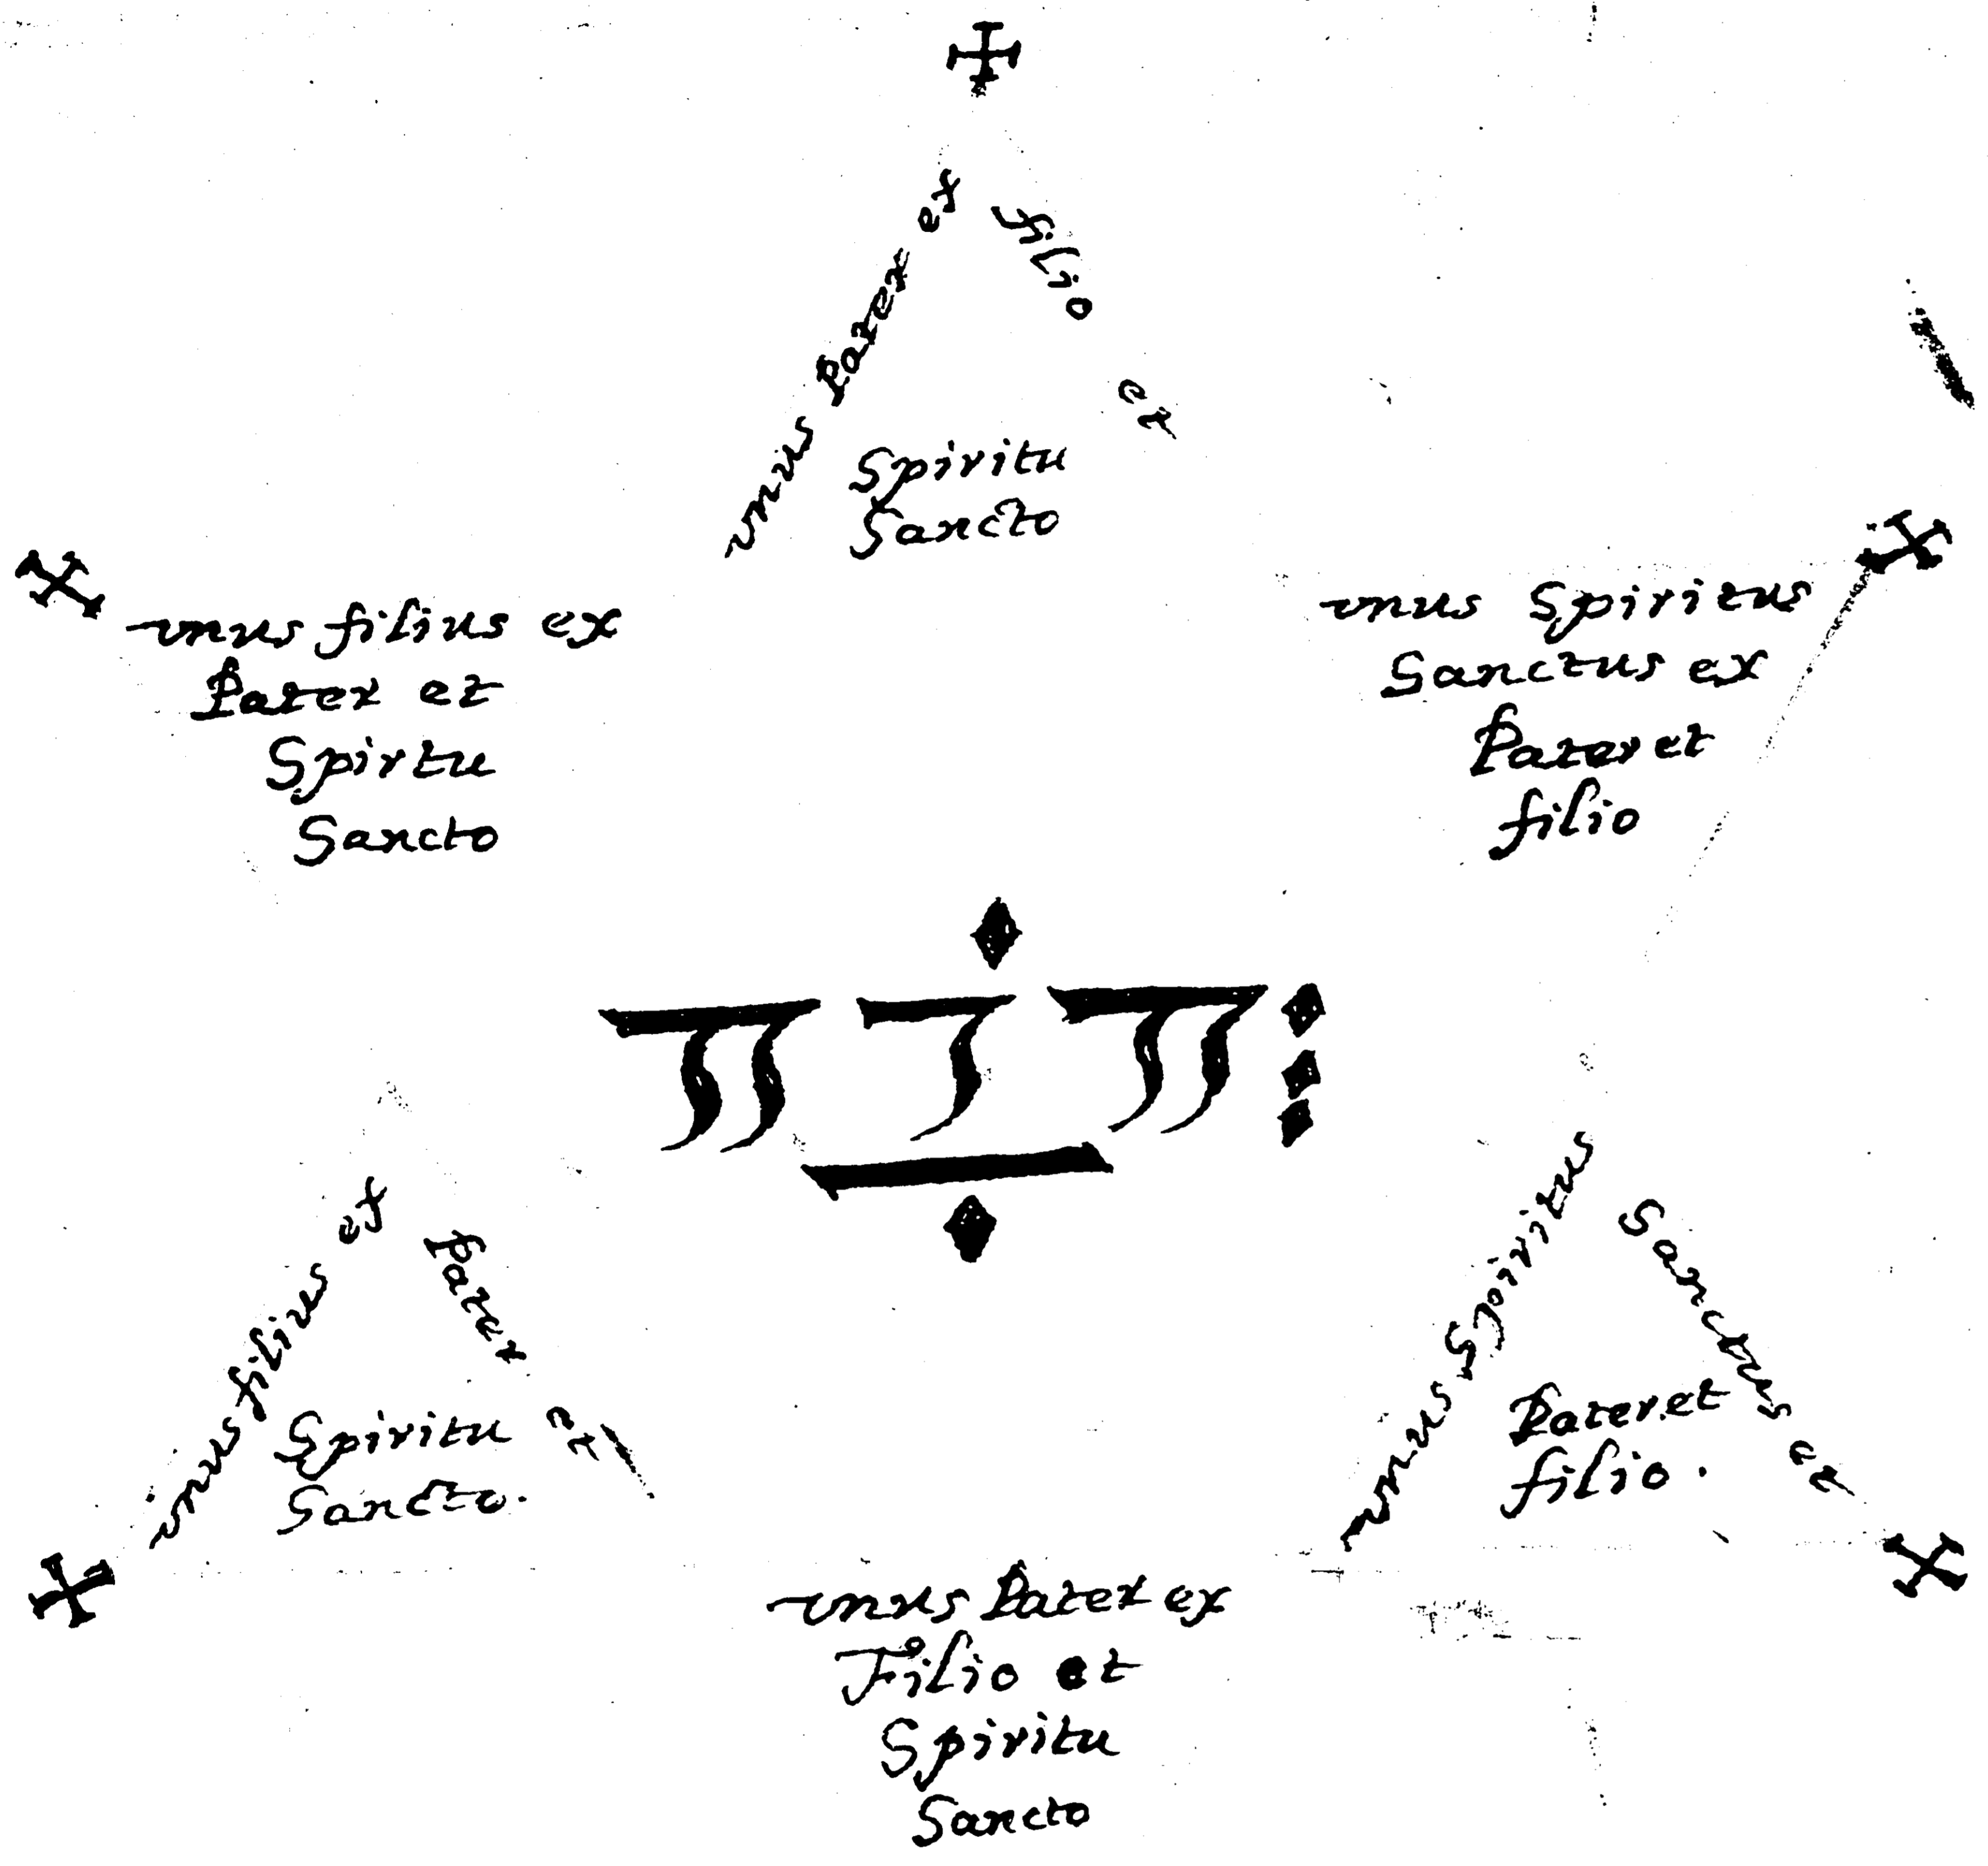 unus Pater ex
filio et
Spiritu
Sancto
unus filius ex
Pater et
Spirtu
Sancto
unus Spiritus
Sanctus ex
Pater et
filio
unus filius ex
Pater et
Spiritu
Sancto.
unus Spiritus
Sanctus ex
Pater et
filio.
unus Pater ex
Filio et
Spiritu
Sancto